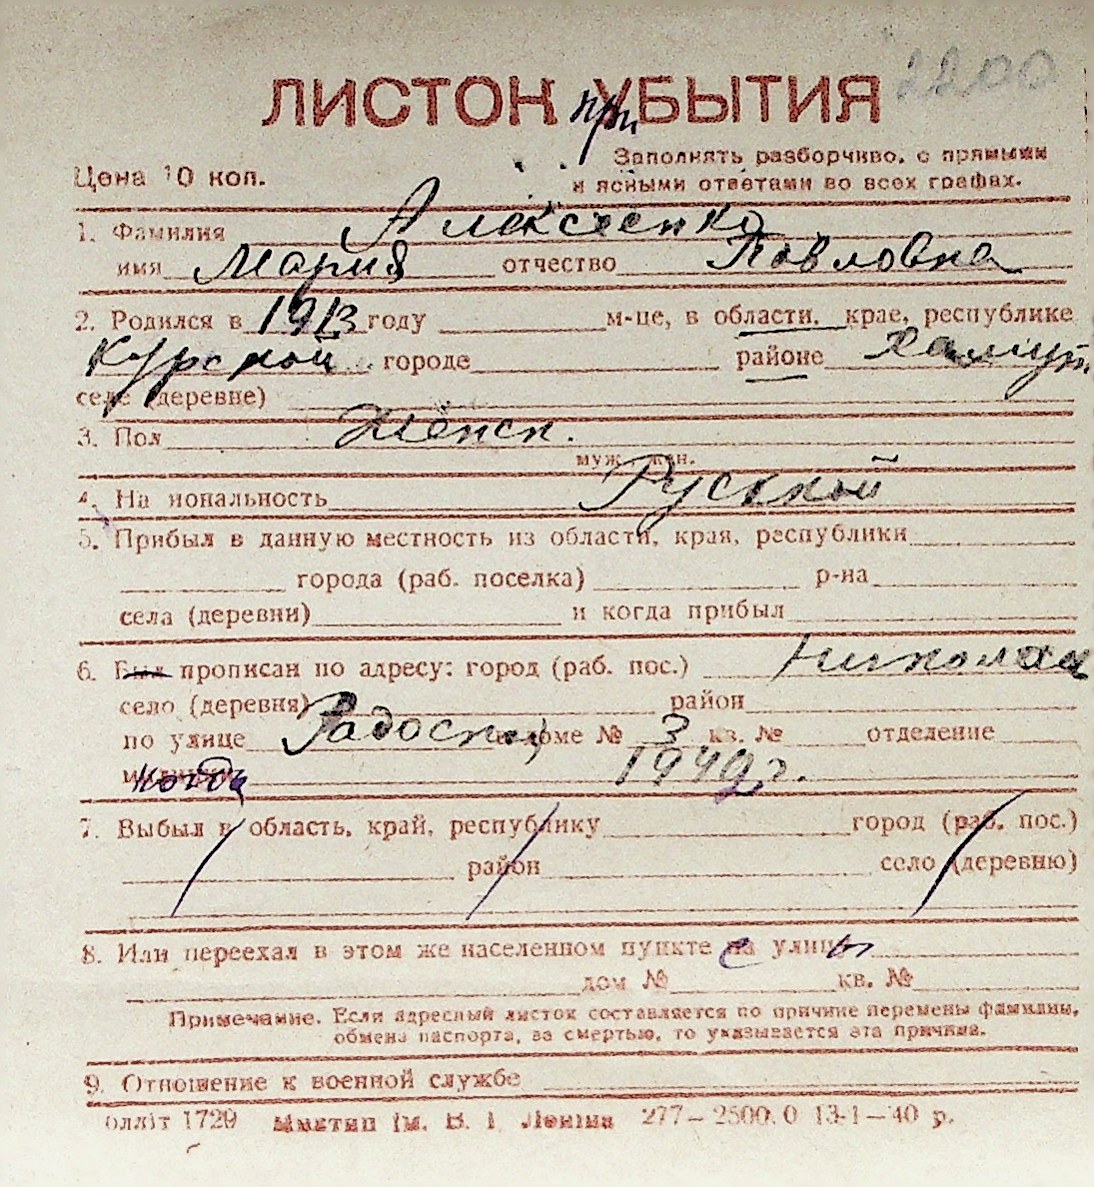 2200
ЛИСТОК при УБЫТИЯ
Цена 10 коп.
Заполнять разборчиво, с прямыми
и ясными ответами во всех графах.
1. Фамилия Алексеенко
имя Мария отчество Павловна
2. Родился в 1913 году м-це, в области, крае, республике
Курской городе районе Хамут.
селе (деревне)
3. Пол Женск.
муж., жен.
4. Национальность Русской
5. Прибыл в данную местность из области, края, республики
города (раб. поселка) р-на
села (деревни) и когда прибыл
6. Был прописан по адресу: город (раб. пос.) Николаев
село (деревня) район
по улице в доме № 3 кв. № отделение
когда 1949 г.
7. Выбыл в область, край, республику город (раб. пос.)
район село (деревню)
8. Или переехал в этом же населенном пункте с улицы
дом № кв. №
Примечание. Если адресный листок составляется по причине перемены фамилии,
обмена паспорта, за смертью, то указывается эта причина.
9. Отношение к военной службе
олліт 1729 ім. В. І. Леніна 277—2500.0 13-1—40 р.